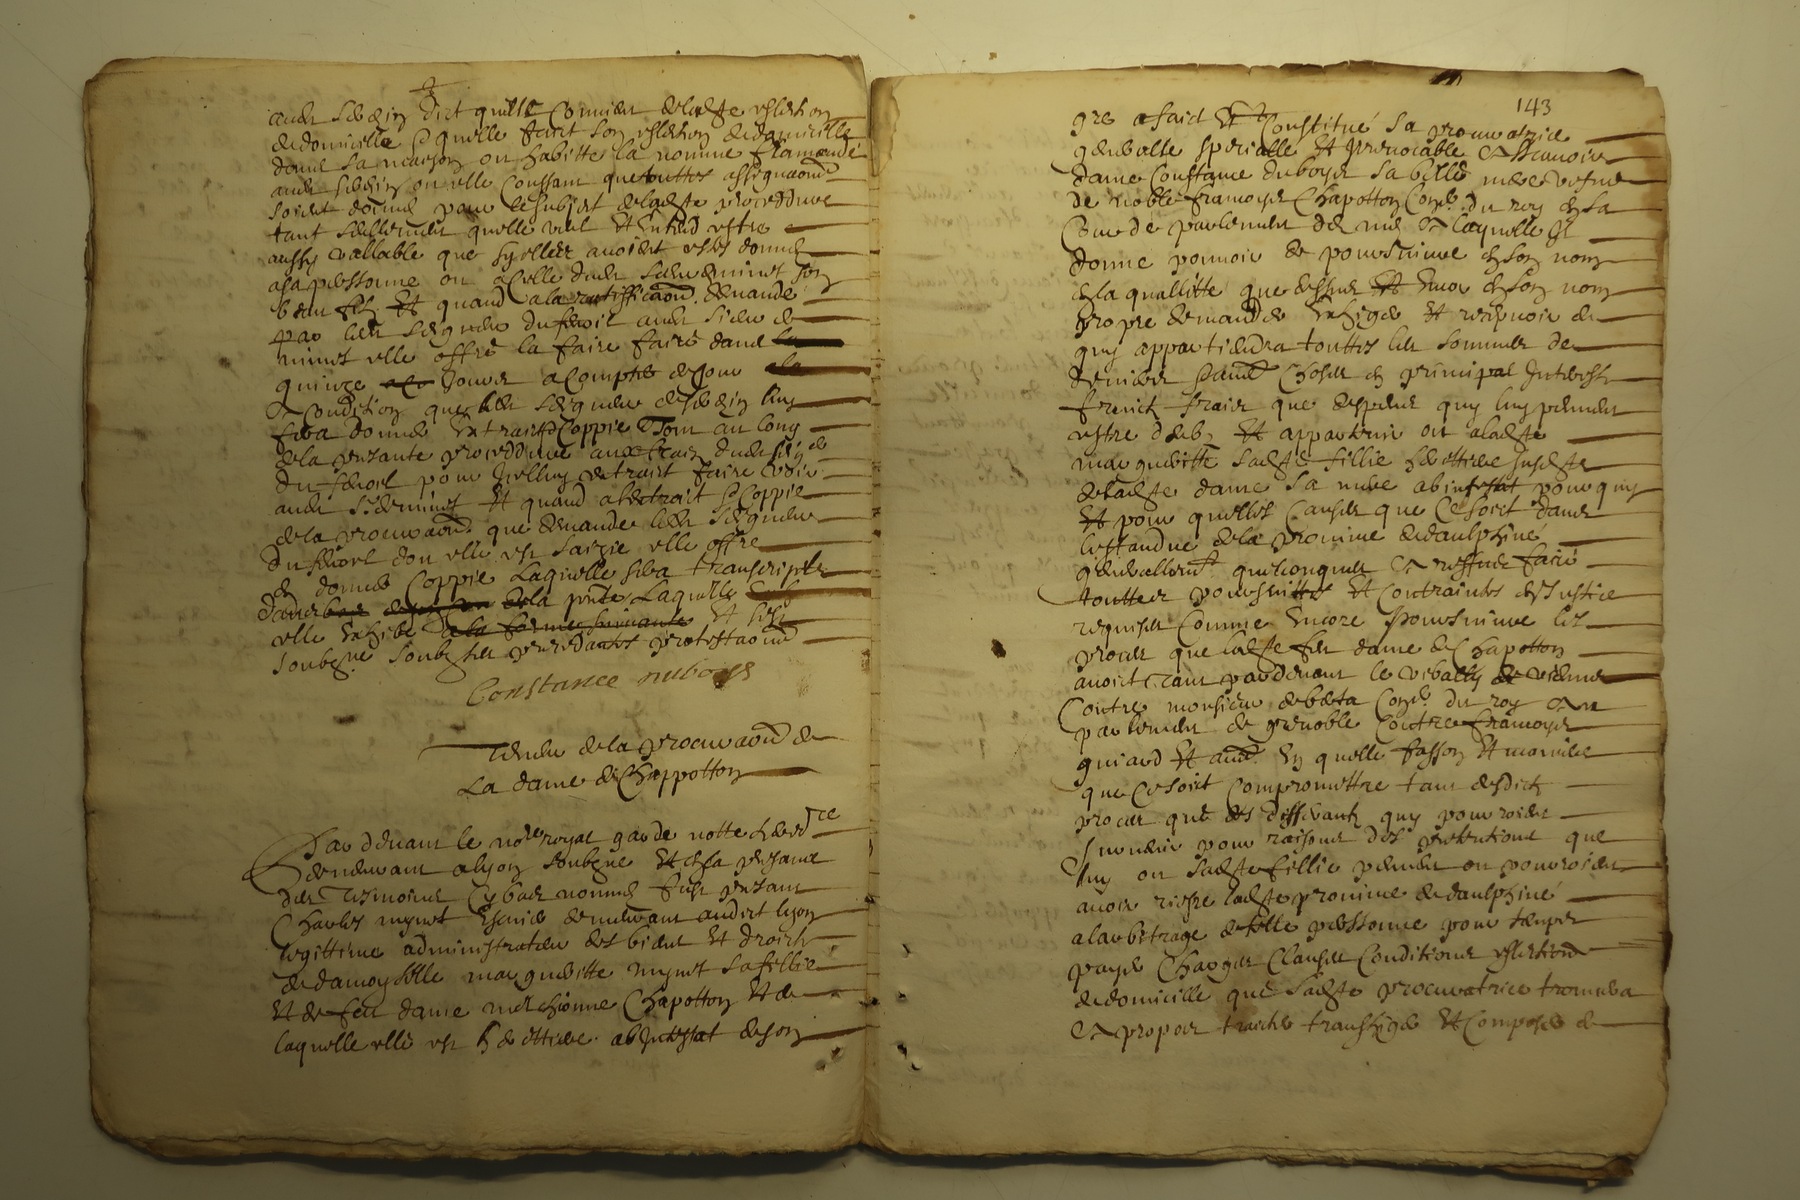 audit sieur dict quelle convient de ladte eslection
de domicille & quelle faict son eslection de domicille
dans sa maison ou habitte la nomme flamande
ou elle consent que touttes assignaons
soient donnes pour le subject de ladte procedure
tant seullement quelle veut et entend estre
aussy vallable que sy elles avoient estes donnes
a sa personne ou a celle dudt sieur de mimet son
beau filz Et quand a la rattifficaon demande
par ledt seigneur du audt sieur de
mimet elle offre la faire faire dans
quinze jours a compter de ce jour
a condition que ledt seigneur luy
fera donner extraict & coppie tout au long
de la presante procedure aux frais dudt sr de
pour icelluy extraict faire voir
audt sr de mimet Et quand a lextraict & coppie
de la procuraon que demande ledt seigneur
du dont elle est saizie elle offre
de donner coppie laquelle sera transcripte
de la pnte laquelle
elle exhibe a la forme suivante Et sest
soubzne soubz les precedantes protestaons
Constance duboys
Teneur de la procuraon de
La dame de Chappotton
Par devant le nore royal garde notte heredre
demeurant a lyon soubzne Et en la presance
des tesmoins cy bas nommes fust presant
Charles mymet escuier demeurant audict lyon
legittime administrateur des biens Et droicts
de damoyselle margueritte mymet sa fillie
Et de feu dame melchionne Chapotton Et de
laquelle elle est herettiere abjntestat de son
143
gre a faict Et Constitué sa procuratrice
generalle specialle Et jrrevocable a scavoir
dame Constance duboys sa belle mere vefve
de noble francoys Chapotton Coner du roy en sa
Cour de parlement de a laquelle jl
donne pouvoir de poursuivre en son nom
en la quallitte que dessus Et encor en son nom
propre demander exhiger Et recepvoir de
quy appartiendra touttes les sommes de
deniers & autres choses en principal jnterestz
fruictz fraicz que despens quy luy peuvent
estre deubz Et appartenir ou a ladte
margueritte sadte fillie herettiere susdte
de ladte dame sa mere abintestat pour quy
Et pour quelles causes que ce soict dans
lestandue de la province de daulphiné
generallemt quelconques & a reffuz faire
touttes poursuittes Et contraintes de justice
requises comme encore poursuivre les
proces que ladte feu dame de Chapotton
avoict tant pardevant le vibally de vienne
Contre monsieur de beta Coner du roy au
parlement de grenoble contre francoys
guiard Et autre En quelle fasson Et maniere
que ce soict compromettre tant desdicts
proces que des differantz quy pourroient
survenir pour raison des pretentions que
luy ou sadte fillie peuvent ou pourroient
avoir riere ladte province de daulphiné
a larbitrage de telle personne pour temps
payes charges clauses conditions eslections
de domicille que sadte procuratrice trouvera
a propos traicter transhiger Et composer de